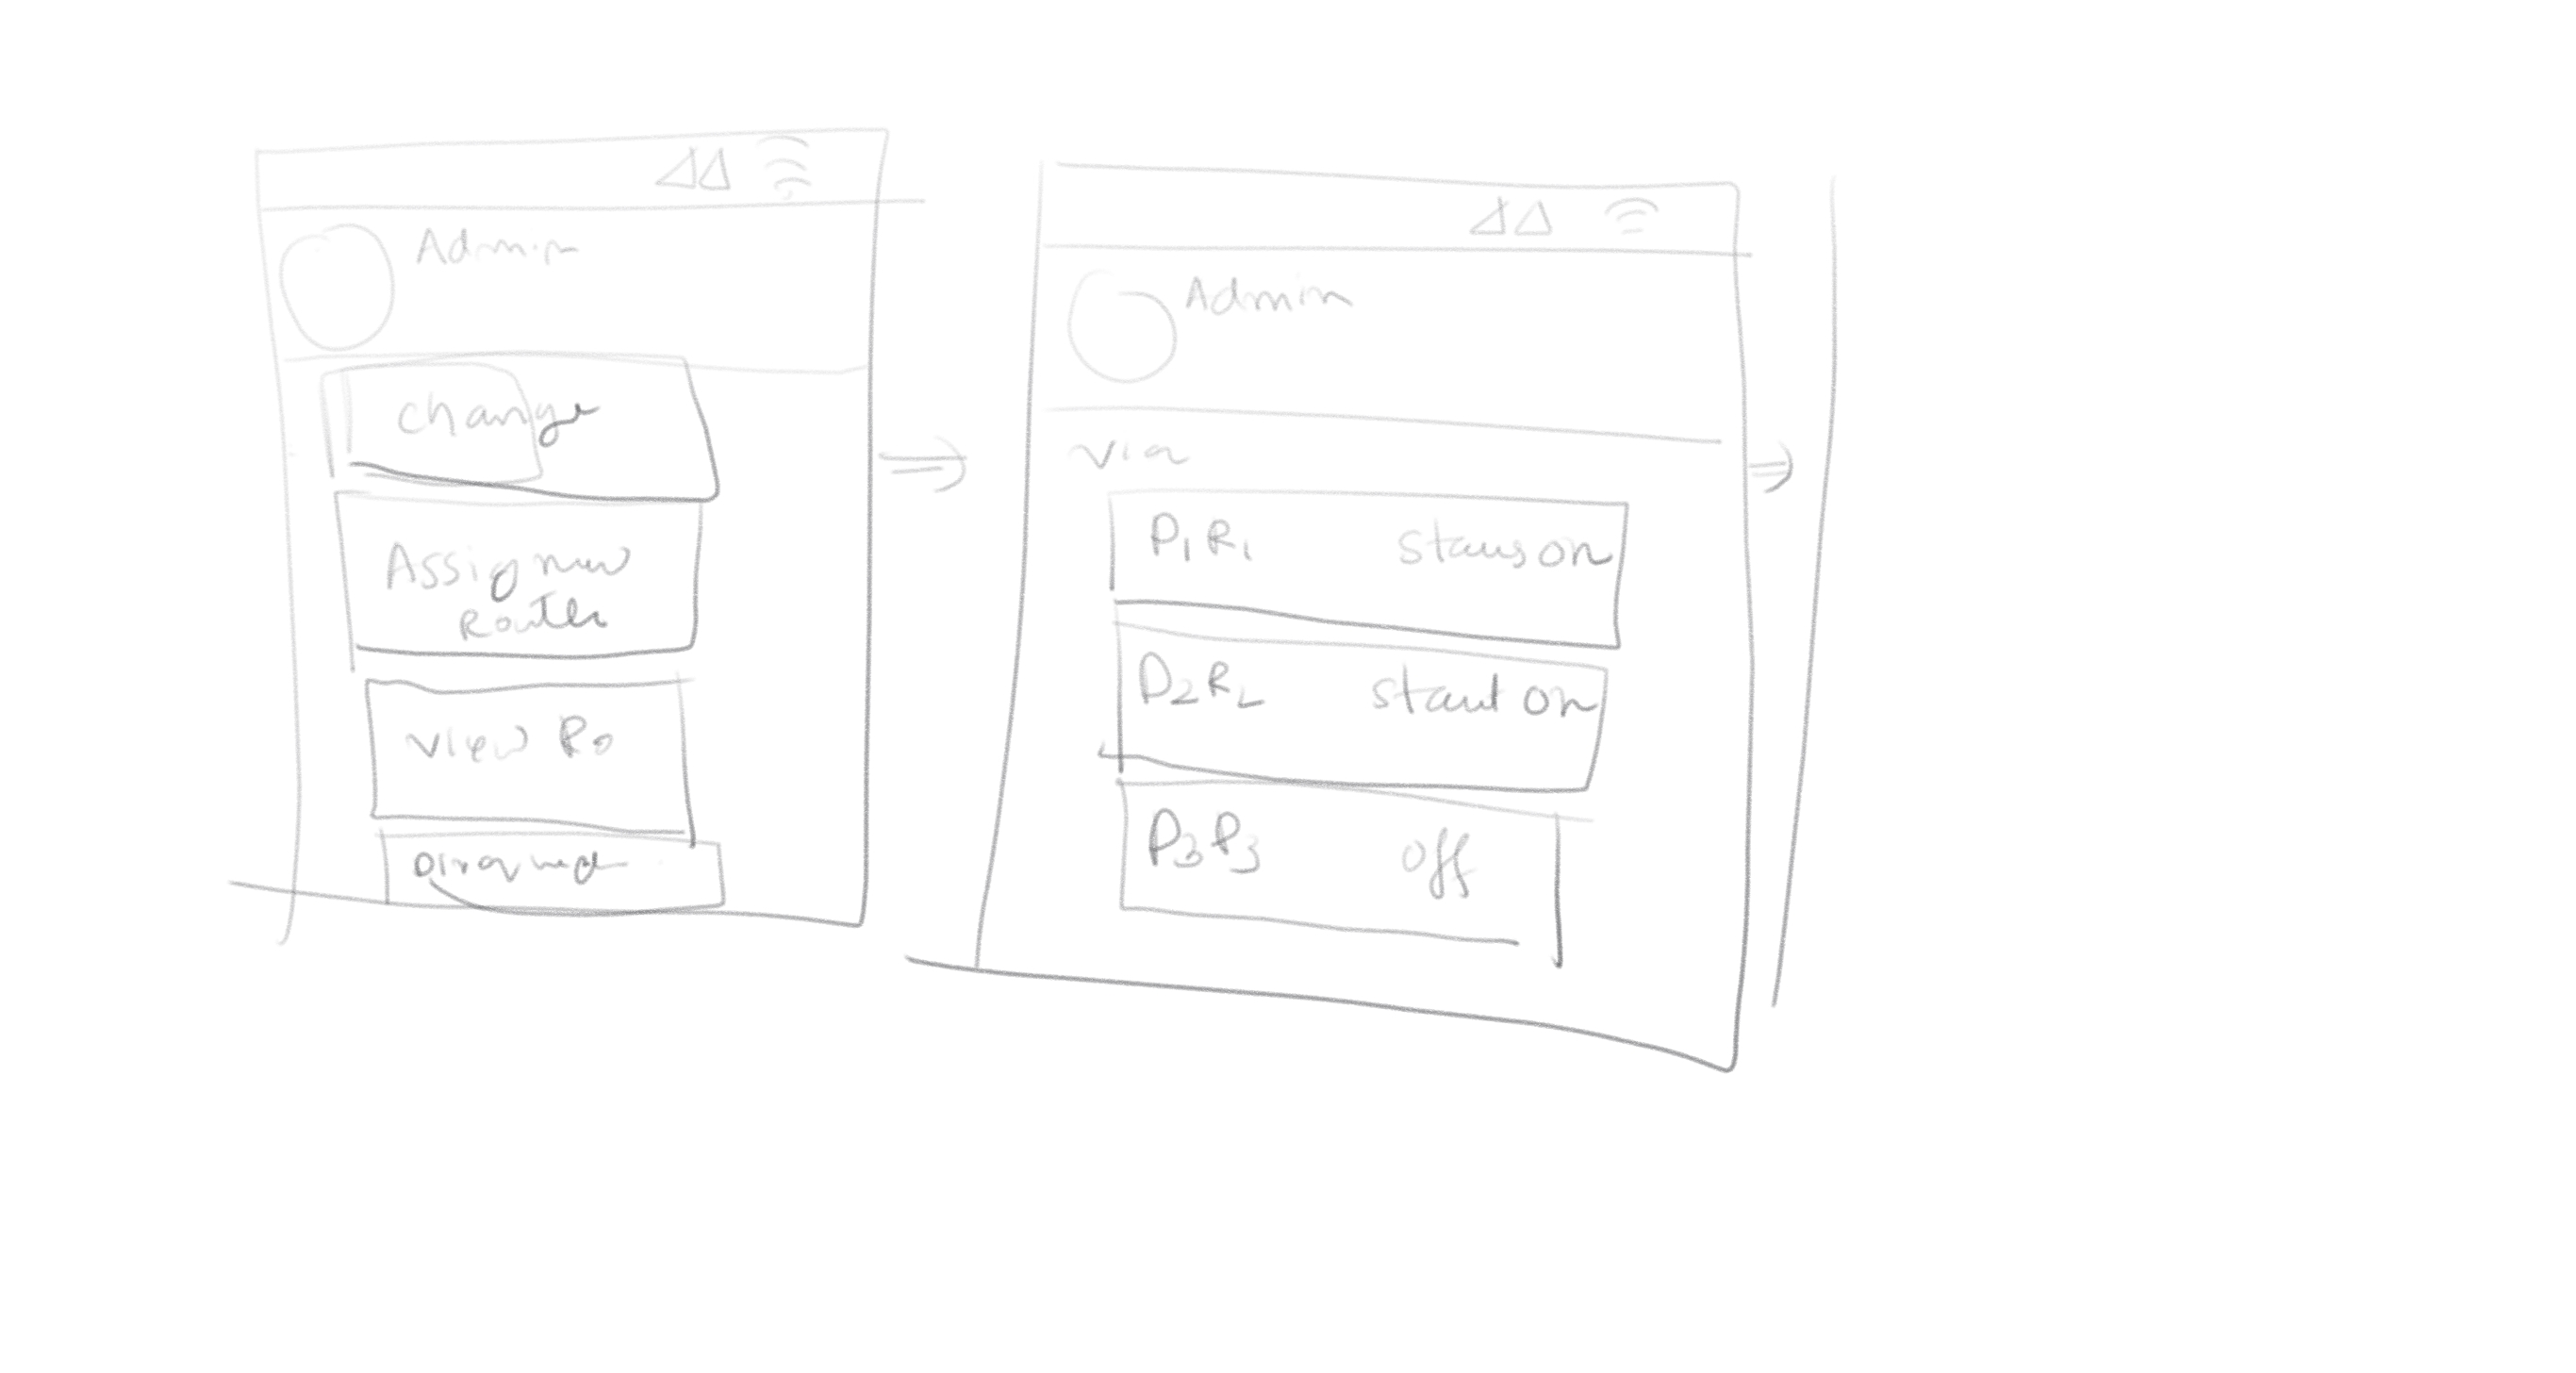 Admin
Change
Assig new
Router
View Ro
Admin
Via
P1R1 Staus on
D2R2
P3P3 off